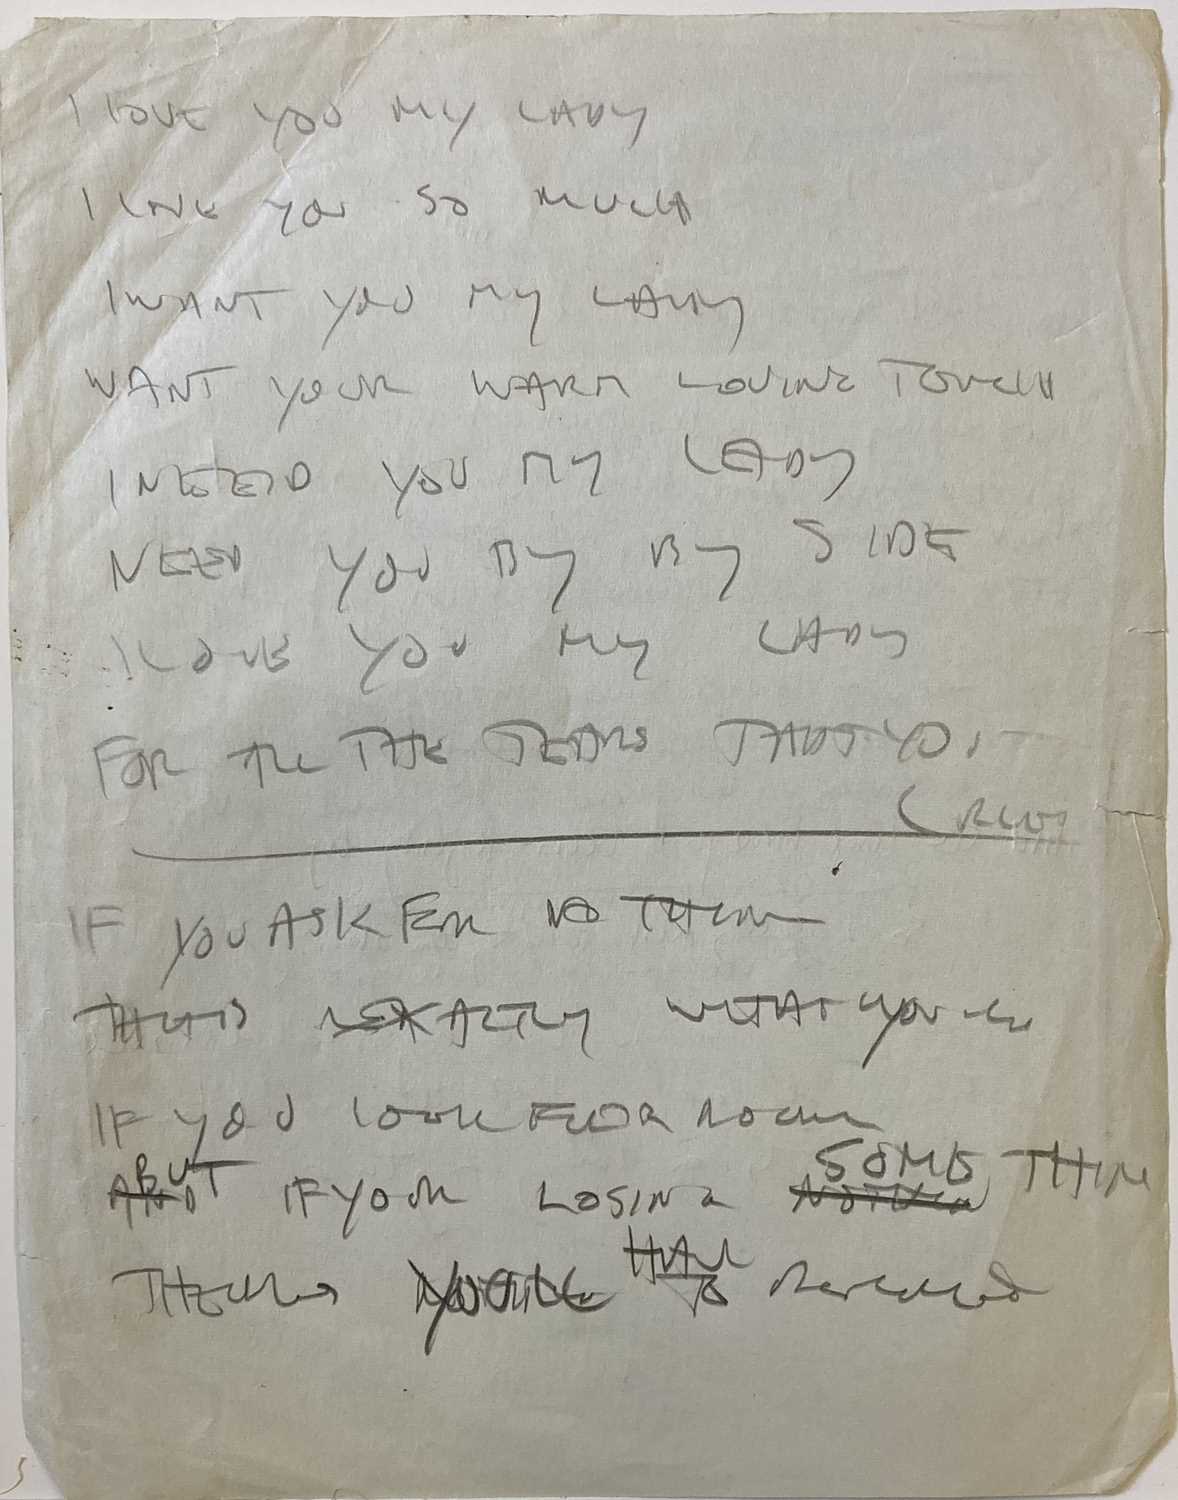 I LOVE YOU MY LADY
I LOVE YOU SO MUCH
I WANT YOU MY LADY
WANT YOUR WARM LOVING TOUCH
I NEED YOU MY LADY
NEED YOU BY BY SIDE
I LOVE YOU MY LADY
FOR ALL THE TEARS THAT YOU
CRIED
IF YOU ASK FOR NOTHING
THATS EXACTLY WHAT YOU
IF YOU LOOK FOR
BUT IF YOUR LOSING SOMETHING
TO